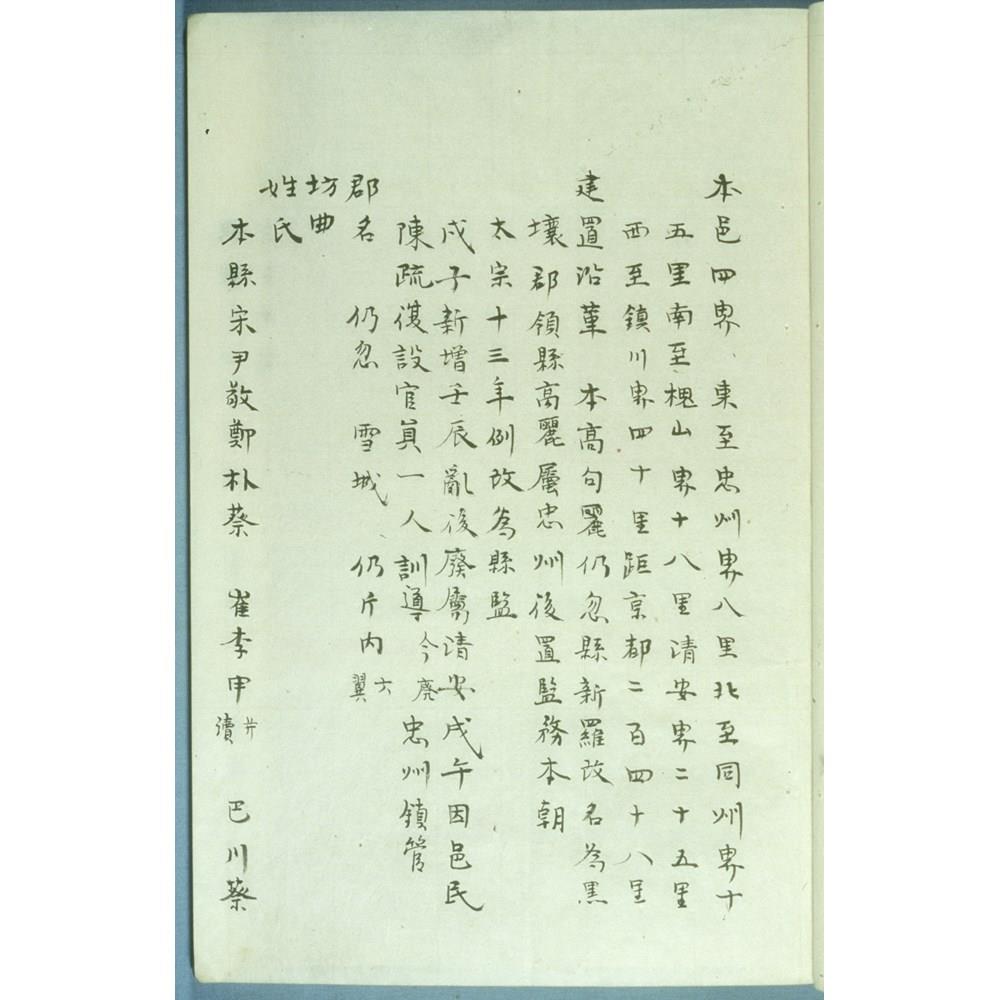 本邑四界 東至忠州界八里北至同州界十
五里南至槐山界十八里清安界二十五里
西至鎮川界四十里距京都二百四十八里
建置沿革 本高句麗仍忽縣新羅改名為黑
壤郡領縣高麗屬忠州後置監務本朝
太宗十三年例改為縣監
戊子新增壬辰亂後廢屬清安戊午因邑民
陳疏復設官員一人訓導今廃忠州鎮管
郡名 仍忽 雪城 仍斤内 六翼
坊曲
姓氏
本縣宋尹敬鄭朴蔡 崔李申 并續 巴川蔡